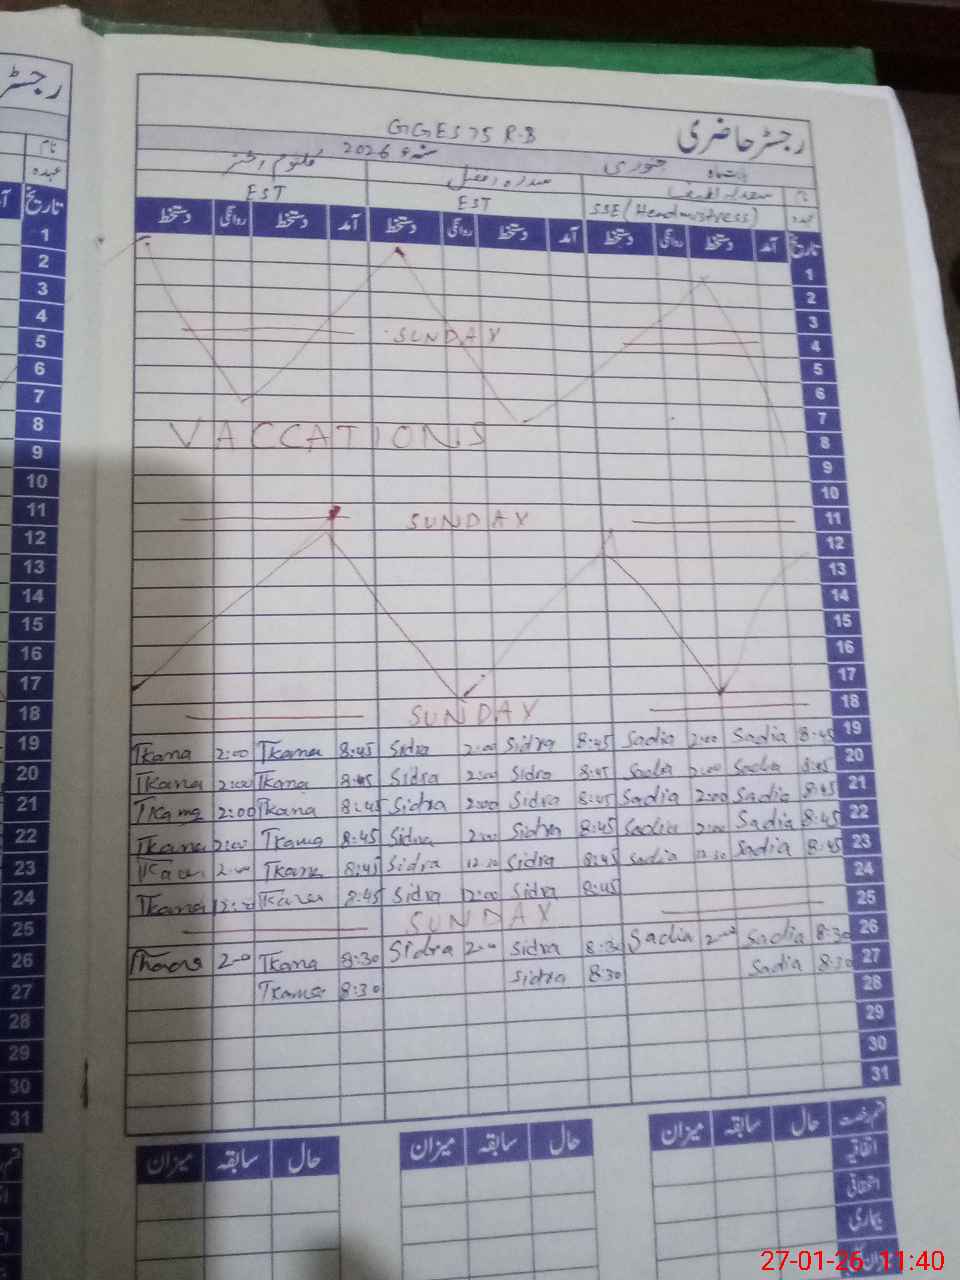 رجسٹر
رجسٹر حاضری
GGES 75 R.B
جنوری سنہ 2026
EST EST SSE (Headmistress)
نام
عہدہ
تاریخ
دستخط روانگی دستخط آمد دستخط روانگی دستخط آمد دستخط روانگی دستخط آمد تاریخ
1 1
2 2
3 3
4 SUNDAY 4
5 5
6 6
7 7
8 VACCATIONS 8
9 9
10 10
11 SUNDAY 11
12 12
13 13
14 14
15 15
16 16
17 17
18 SUNDAY 18
19 2:00 8:45 Sidra 2:00 Sidra 8:45 Sadia 2:00 Sadia 8:45 19
20 2:00 8:45 Sidra 2:00 Sidra 8:45 Sadia 2:00 Sadia 8:45 20
21 2:00 8:45 Sidra 2:00 Sidra 8:45 Sadia 2:00 Sadia 8:45 21
22 2:00 8:45 Sidra 2:00 Sidra 8:45 Sadia 2:00 Sadia 8:45 22
23 8:45 Sidra 12:30 Sidra 8:45 Sadia 12:30 Sadia 8:45 23
24 8:45 Sidra 2:00 Sidra 8:45 24
25 SUNDAY 25
26 2:00 8:30 Sidra 2:00 Sidra 8:30 Sadia 2:00 Sadia 8:30 26
27 8:30 Sidra 8:30 Sadia 8:30 27
28 28
29 29
30 30
31 31
میزان سابقہ حال میزان سابقہ حال میزان سابقہ حال قسم رخصت
اتفاقیہ
استحقاقی
بیماری
27-01-26 11:40